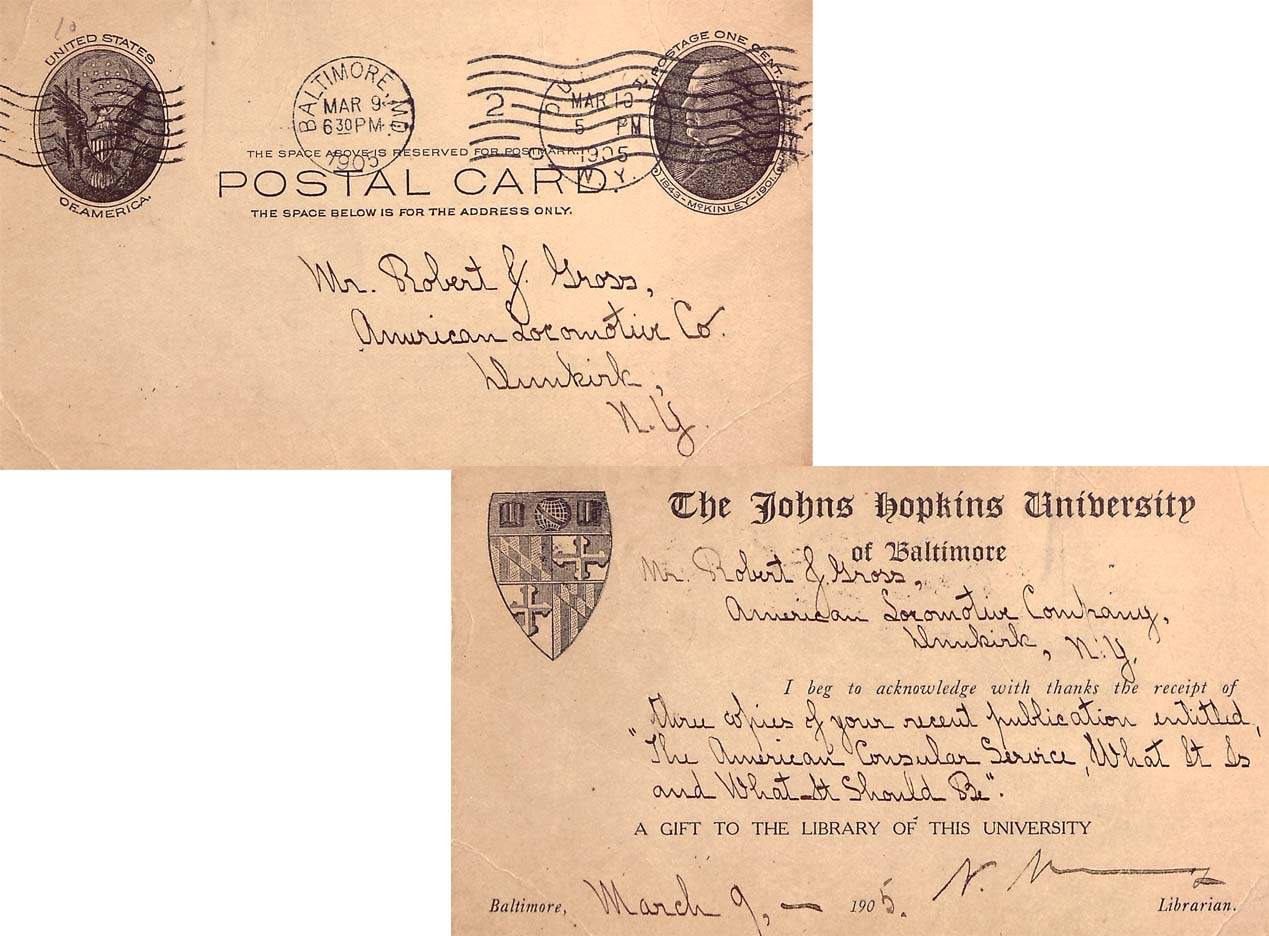 UNITED STATES
OF AMERICA.
BALTIMORE, MD.
MAR 9
6 30 PM
1905
2
MAR 10
5 PM
1905
N.Y.
POSTAGE ONE CENT.
1843-McKINLEY-1901.
THE SPACE ABOVE IS RESERVED FOR POSTMARK.
POSTAL CARD.
THE SPACE BELOW IS FOR THE ADDRESS ONLY.
Mr. Robert J. Gross,
American Locomotive Co.
Dunkirk,
N.Y.
The Johns Hopkins University
of Baltimore
Mr. Robert J. Gross,
American Locomotive Company,
Dunkirk, N.Y.
I beg to acknowledge with thanks the receipt of
three copies of your recent publication entitled,
"The American Consular Service, What It Is
and What It Should Be".
A GIFT TO THE LIBRARY OF THIS UNIVERSITY
N.
Baltimore, March 9, — 1905. Librarian.